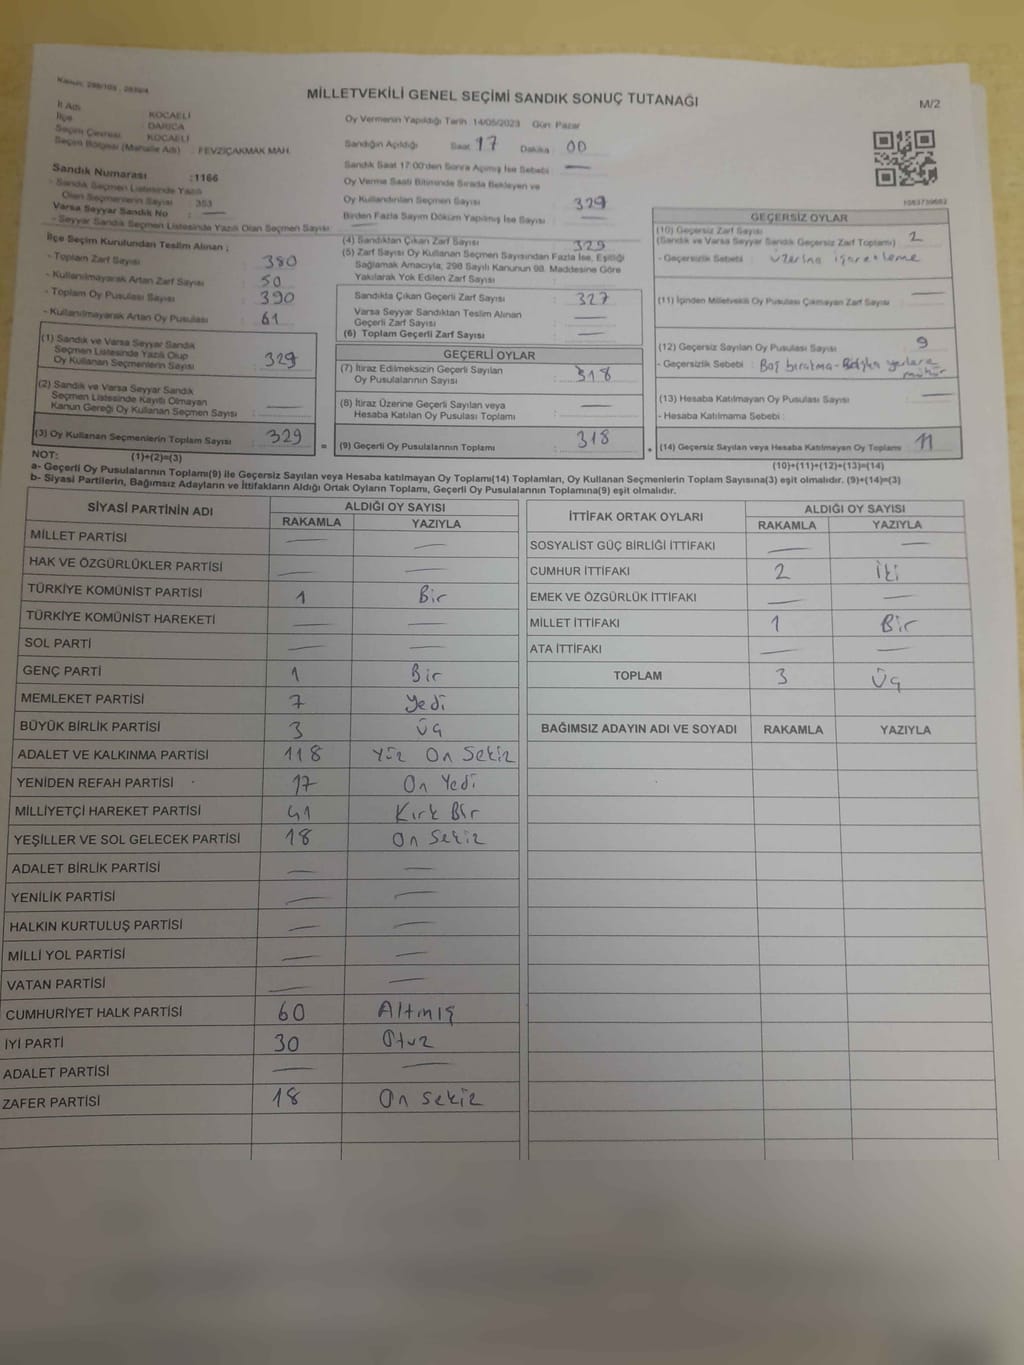 Kanun: 298/105 , 2839/4
MİLLETVEKİLİ GENEL SEÇİMİ SANDIK SONUÇ TUTANAĞI
M/2
İl Adı : KOCAELİ
İlçe : DARICA
Seçim Çevresi : KOCAELİ
Seçim Bölgesi (Mahalle Adı) : FEVZİÇAKMAK MAH.
Sandık Numarası :1166
- Sandık Seçmen Listesinde Yazılı
Olan Seçmenlerin Sayısı : 353
Varsa Seyyar Sandık No : —
- Seyyar Sandık Seçmen Listesinde Yazılı Olan Seçmen Sayısı: —
Oy Vermenin Yapıldığı Tarih :14/05/2023 Gün: Pazar
Sandığın Açıldığı Saat 17 Dakika 00
Sandık Saat 17:00'den Sonra Açılmış İse Sebebi —
Oy Verme Saati Bitiminde Sırada Bekleyen ve
Oy Kullandırılan Seçmen Sayısı : 329
Birden Fazla Sayım Döküm Yapılmış İse Sayısı : —
İlçe Seçim Kurulundan Teslim Alınan ;
- Toplam Zarf Sayısı : 380
- Kullanılmayarak Artan Zarf Sayısı : 50
- Toplam Oy Pusulası Sayısı : 390
- Kullanılmayarak Artan Oy Pusulası : 61
(1) Sandık ve Varsa Seyyar Sandık
Seçmen Listesinde Yazılı Olup
Oy Kullanan Seçmenlerin Sayısı : 329
(2) Sandık ve Varsa Seyyar Sandık
Seçmen Listesinde Kayıtlı Olmayan
Kanun Gereği Oy Kullanan Seçmen Sayısı : —
(3) Oy Kullanan Seçmenlerin Toplam Sayısı : 329
(4) Sandıktan Çıkan Zarf Sayısı : 329
(5) Zarf Sayısı Oy Kullanan Seçmen Sayısından Fazla İse, Eşitliği
Sağlamak Amacıyla, 298 Sayılı Kanunun 98. Maddesine Göre
Yakılarak Yok Edilen Zarf Sayısı :
Sandıkta Çıkan Geçerli Zarf Sayısı : 327
Varsa Seyyar Sandıktan Teslim Alınan
Geçerli Zarf Sayısı : —
(6) Toplam Geçerli Zarf Sayısı : —
GEÇERLİ OYLAR
(7) İtiraz Edilmeksizin Geçerli Sayılan
Oy Pusulalarının Sayısı : 318
(8) İtiraz Üzerine Geçerli Sayılan veya
Hesaba Katılan Oy Pusulası Toplamı : —
= (9) Geçerli Oy Pusulalarının Toplamı : 318 +
GEÇERSİZ OYLAR
(10) Geçersiz Zarf Sayısı
(Sandık ve Varsa Seyyar Sandık Geçersiz Zarf Toplamı) : 2
- Geçersizlik Sebebi : üzerine işaretleme
(11) İçinden Milletvekili Oy Pusulası Çıkmayan Zarf Sayısı : —
(12) Geçersiz Sayılan Oy Pusulası Sayısı : 9
- Geçersizlik Sebebi : Boş bırakma - yerlere
mühür
(13) Hesaba Katılmayan Oy Pusulası Sayısı : —
- Hesaba Katılmama Sebebi :
(14) Geçersiz Sayılan veya Hesaba Katılmayan Oy Toplamı : 11
NOT: (1)+(2)=(3)
(10)+(11)+(12)+(13)=(14)
a- Geçerli Oy Pusulalarının Toplamı(9) ile Geçersiz Sayılan veya Hesaba katılmayan Oy Toplamı(14) Toplamları, Oy Kullanan Seçmenlerin Toplam Sayısına(3) eşit olmalıdır. (9)+(14)=(3)
b- Siyasi Partilerin, Bağımsız Adayların ve İttifakların Aldığı Oy Sayıları Toplamı, Geçerli Oy Pusulalarının Toplamına(9) eşit olmalıdır.
SİYASİ PARTİNİN ADI ALDIĞI OY SAYISI
RAKAMLA YAZIYLA
MİLLET PARTİSİ — —
HAK VE ÖZGÜRLÜKLER PARTİSİ — —
TÜRKİYE KOMÜNİST PARTİSİ 1 Bir
TÜRKİYE KOMÜNİST HAREKETİ — —
SOL PARTİ — —
GENÇ PARTİ 1 Bir
MEMLEKET PARTİSİ 7 Yedi
BÜYÜK BİRLİK PARTİSİ 3 Üç
ADALET VE KALKINMA PARTİSİ 118 Yüz On Sekiz
YENİDEN REFAH PARTİSİ 17 On Yedi
MİLLİYETÇİ HAREKET PARTİSİ 41 Kırk Bir
YEŞİLLER VE SOL GELECEK PARTİSİ 18 On Sekiz
ADALET BİRLİK PARTİSİ — —
YENİLİK PARTİSİ — —
HALKIN KURTULUŞ PARTİSİ — —
MİLLİ YOL PARTİSİ — —
VATAN PARTİSİ — —
CUMHURİYET HALK PARTİSİ 60 Altmış
İYİ PARTİ 30 Otuz
ADALET PARTİSİ — —
ZAFER PARTİSİ 18 On sekiz
İTTİFAK ORTAK OYLARI ALDIĞI OY SAYISI
RAKAMLA YAZIYLA
SOSYALİST GÜÇ BİRLİĞİ İTTİFAKI — —
CUMHUR İTTİFAKI 2 İki
EMEK VE ÖZGÜRLÜK İTTİFAKI — —
MİLLET İTTİFAKI 1 Bir
ATA İTTİFAKI — —
TOPLAM 3 Üç
BAĞIMSIZ ADAYIN ADI VE SOYADI RAKAMLA YAZIYLA